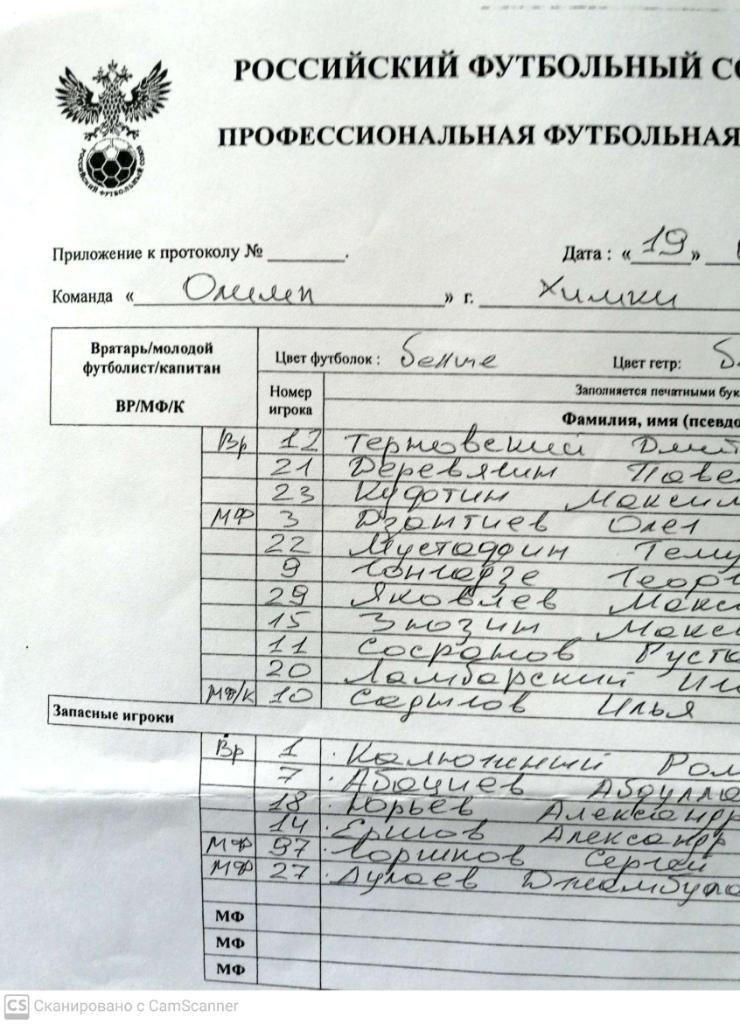 РОССИЙСКИЙ ФУТБОЛЬНЫЙ СО
ПРОФЕССИОНАЛЬНАЯ ФУТБОЛЬНАЯ
РОССИЙСКИЙ ФУТБОЛЬНЫЙ СОЮЗ
Приложение к протоколу № ______. Дата : « 19 »
Команда « Олимп » г. Химки
Вратарь/молодой футболист/капитан
ВР/МФ/К
Цвет футболок : белые Цвет гетр:
Номер игрока
Заполняется печатными бук
Фамилия, имя (псевдо
Вр 12 Терновский Дмит
21 Деревягин Паве
23 Кудотин Максим
МФ 3 Дзантиев Олег
22 Мустафин Тему
9 Гонгадзе Геор
29 Яковлев Макс
15 Макс
11 Сосранов Руст
20 Ламбарский Ил
МФ/К 10 Садылов Илья
Запасные игроки
Вр 1 Калюжный Ром
7 Абациев Абдулла
18 Юрьев Александр
14 Ершов Александр
МФ 97 Горшков Сергей
МФ 27 Дулаев Джамбула
МФ
МФ
МФ
CS Сканировано с CamScanner